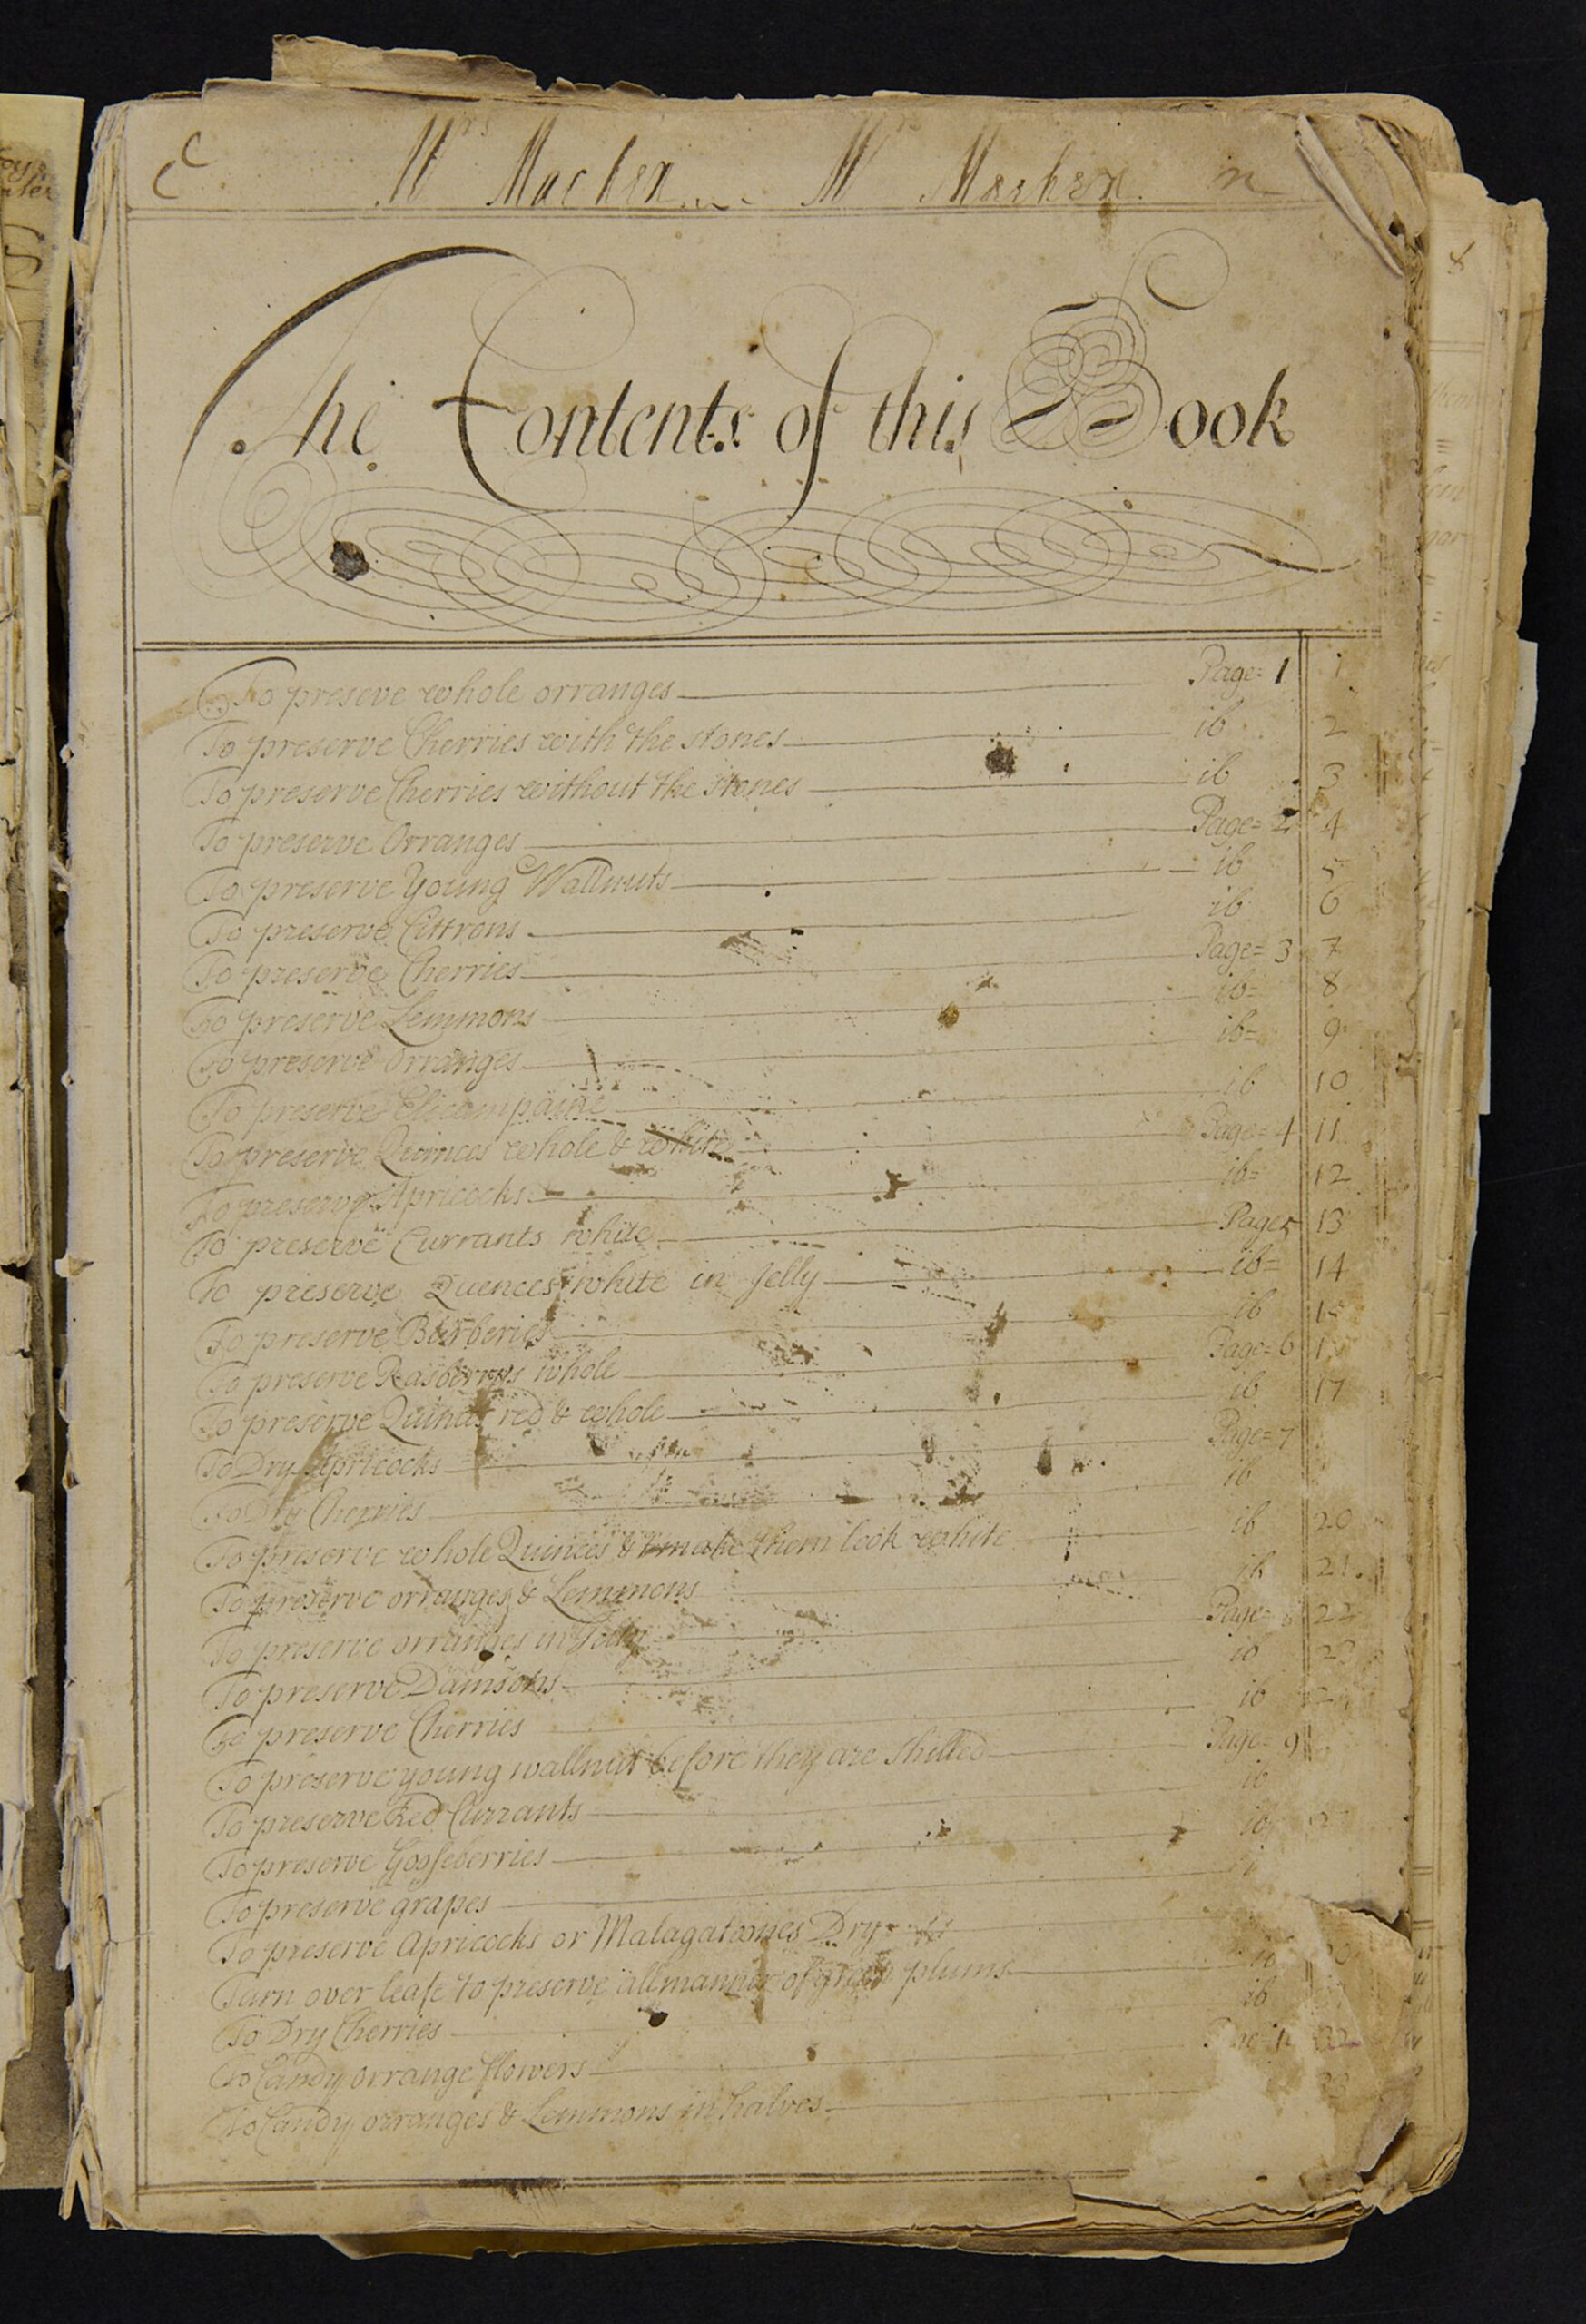 C Mrs Machen Mrs Machen m
The Contents of this Book
To preseve whole orranges Page= 1 1
To preserve Cherries with the stones ib 2
To preserve Cherries without the stones ib 3
To preserve Orranges Page= 2 4
To preserve Young Wallnuts ib 5
To preserve Cittrons ib 6
To preserve Cherries Page= 3 7
To preserve Lemmons ib= 8
To preserve orranges ib= 9
To preserve Elicampaine ib 10
To preserve Quinces whole & white Page= 4 11
To preserve Apricocks ib= 12
To preserve Currants white Page 5 13
To preserve Quences white in Jelly ib= 14
To preserve Barberies ib 15
To preserve Rasberrys whole Page= 6
To preserve Quinces red & whole ib 17
To Dry Apricocks Page= 7
To Dry Cherries ib
To preserve whole Quinces & make them look white ib 20
To preserve orranges & Lemmons ib 21
To preserve orranges in Jelly Page= 8 22
To preserve Damsons ib 23
To preserve Cherries ib
To preserve young wallnut before they are shelled Page= 9
To preserve Red Currants ib
To preserve Goosberries ib
To preserve grapes
To preserve Apricocks or Malagatoones Dry
Turn over leafe to preserve all manner of green plums ib
To Dry Cherries ib
To Candy orrange flowers 32
To Candy orranges & Lemmons in halves 33